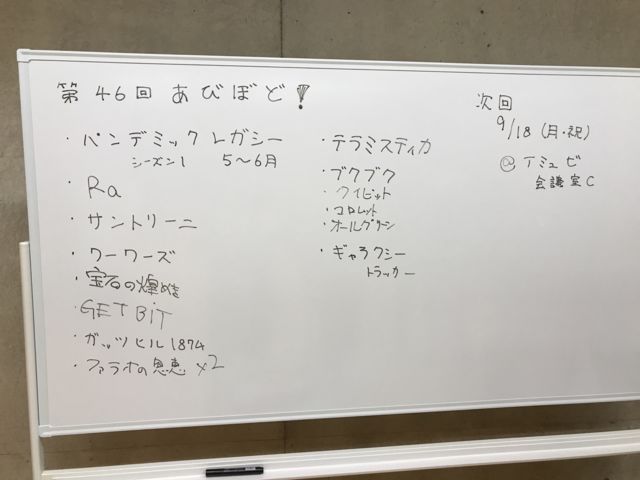 第46回 あびぼど!
・パンデミック レガシー
シーズン1 5〜6月
・Ra
・サントリーニ
・ワーワーズ
・宝石の煌めき
・GET BIT
・ガッツヒル1874
・ファラオの恩恵 x2
・テラミスティカ
・ブクブク
・クイビット
・コロレット
・オールグリーン
・ギャラクシー
トラッカー
次回
9/18 (月・祝)
@アミュゼ
会議室C